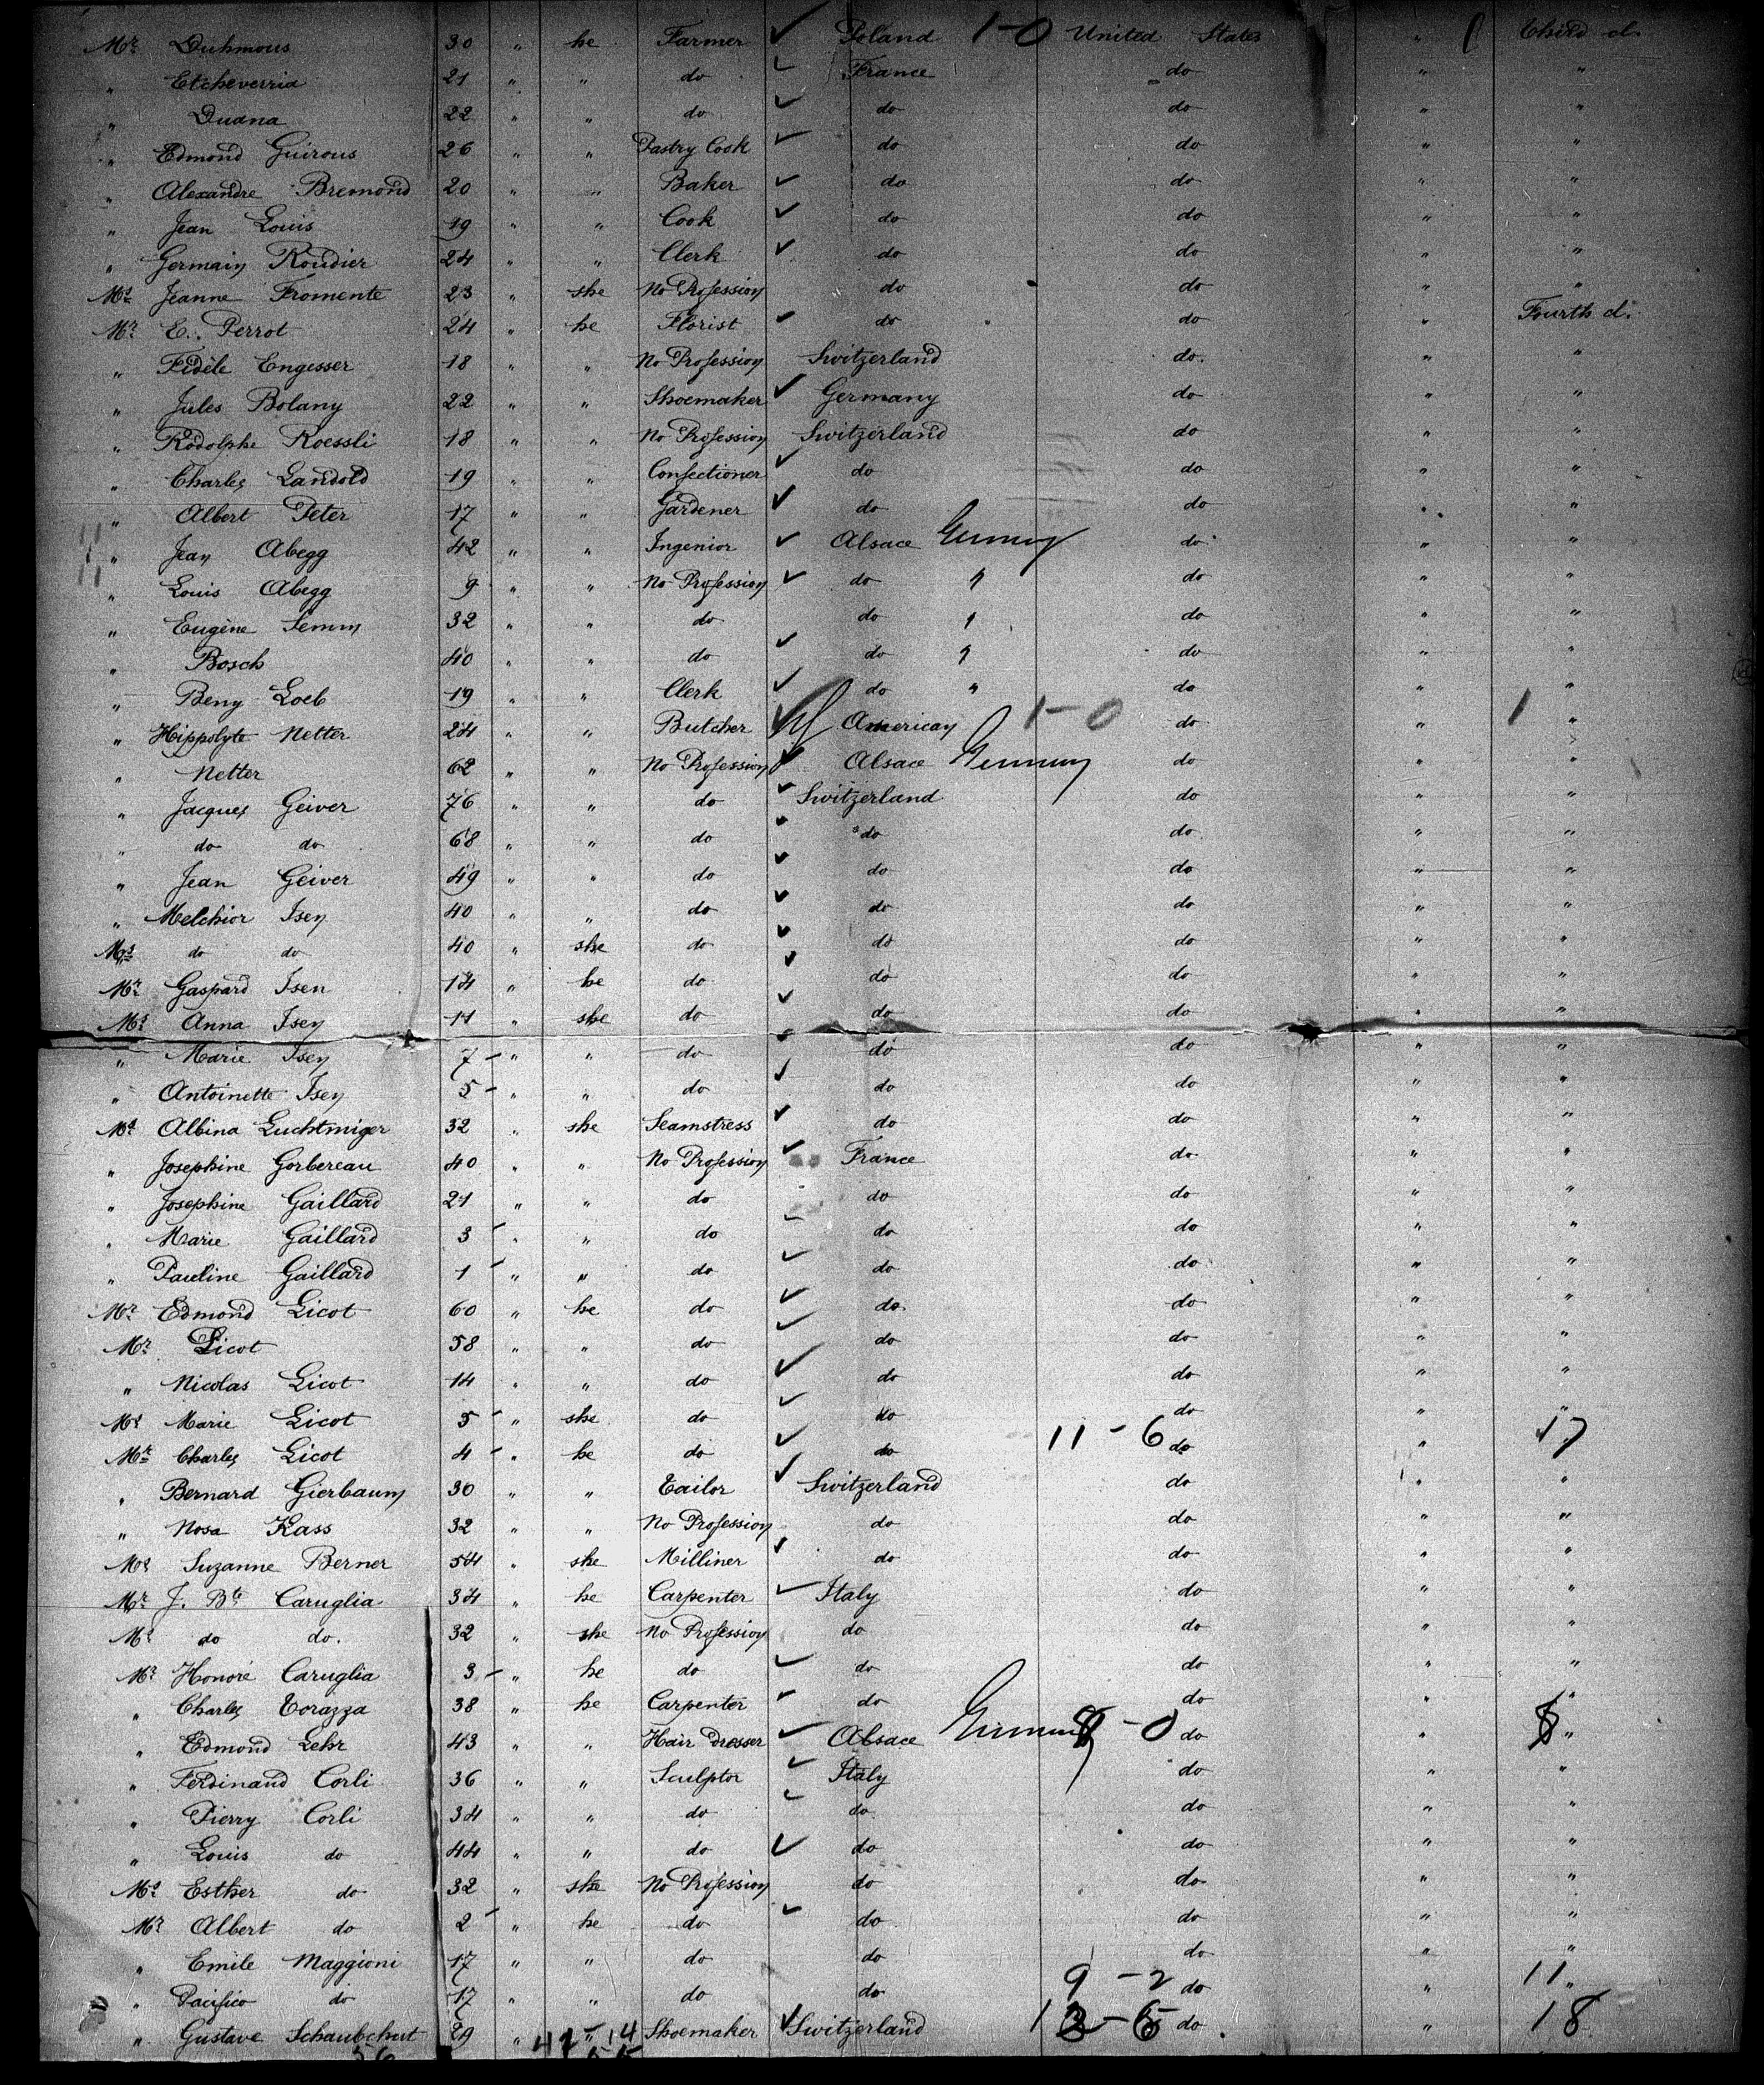 Mr Duhmous 30 " he Farmer ✓ Poland 1-0 United States " Third cl.
" Etcheverria 21 " " do ✓ France do " "
" Duana 22 " " do ✓ do do " "
" Edmond Guirous 26 " " Pastry Cook ✓ do do " "
" Alexandre Bremond 20 " " Baker ✓ do do " "
" Jean Louis 19 " " Cook ✓ do do " "
" Germain Roudier 24 " " Clerk ✓ do do " "
Ms Jeanne Fromente 23 " she No Profession do do " "
Mr E. Perrot 24 " he Florist ✓ do do " Fourth cl.
" Fidèle Engesser 18 " " No Profession Switzerland do. " "
" Jules Bolany 22 " " Shoemaker ✓ Germany do " "
" Rodolphe Roessli 18 " " No Profession Switzerland do " "
" Charles Landold 19 " " Confectioner ✓ do do " "
" Albert Peter 17 " " Gardener ✓ do do " "
" Jean Abegg 42 " " Ingenior ✓ Alsace Germany do " "
" Louis Abegg 9 " " No Profession ✓ do " do " "
" Eugène Semm 32 " " do do " do " "
" Bosch 40 " " do ✓ do " do " "
" Beny Loeb 19 " " Clerk ✓ do " do " "
" Hippolyte Netter 24 " " Butcher ✓ American 1-0 do " 1 "
" Netter 62 " " No Profession ✓ Alsace Germany do " "
" Jacques Geiver 76 " " do ✓ Switzerland do " "
" do do 68 " " do ✓ do do " "
" Jean Geiver 49 " " do ✓ do do " "
" Melchior Isen 40 " " do ✓ do do " "
Ms do do 40 " she do ✓ do do " "
Mr Gaspard Isen 14 " he do ✓ do do " "
Ms Anna Isen 11 " she do ✓ do do " "
" Marie Isen 7 - " " do ✓ do do " "
" Antoinette Isen 5 - " " do ✓ do do " "
Ms Albina Luchtmiger 32 " she Seamstress ✓ do do " "
" Josephine Gorbereau 40 " " No Profession ✓ France do " "
" Josephine Gaillard 21 " " do do do " "
" Marie Gaillard 3 - " " do ✓ do do " "
" Pauline Gaillard 1 - " " do ✓ do do " "
Mr Edmond Licot 60 " he do ✓ do. do " "
Mr Licot 58 " " do ✓ do do " "
" Nicolas Licot 14 " " do ✓ do do " "
Ms Marie Licot 5 - " she do ✓ do do " "
Mr Charles Licot 4 - " he do ✓ do 11 - 6 do " 17
" Bernard Gierbaum 30 " " Tailor ✓ Switzerland do " "
" Nosa Kass 32 " " No Profession do do " "
Ms Suzanne Berner 54 " she Milliner ✓ do do " "
Mr J. Bte Caruglia 34 " he Carpenter ✓ Italy do " "
Ms do do. 32 " she No Profession do do " "
Mr Honoré Caruglia 3 - " he do ✓ do do " "
" Charles Torazza 38 " he Carpenter ✓ do do " "
" Edmond Lehr 43 " " Hair Dresser ✓ Alsace Germany 8 - 0 do " 8 "
" Ferdinand Corli 36 " " Sculptor ✓ Italy do " "
" Pierry Corli 34 " " do ✓ do do " "
" Louis do 44 " " do ✓ do do " "
Ms Esther do 32 " she No Profession do do " "
Mr Albert do 2 - " he do ✓ do do " "
" Emile Maggioni 17 " " do do do " "
" Pacifico do 17 " " do do 9 - 2 do " 11 "
" Gustave Schaubchut 29 " " Shoemaker ✓ Switzerland do " 18